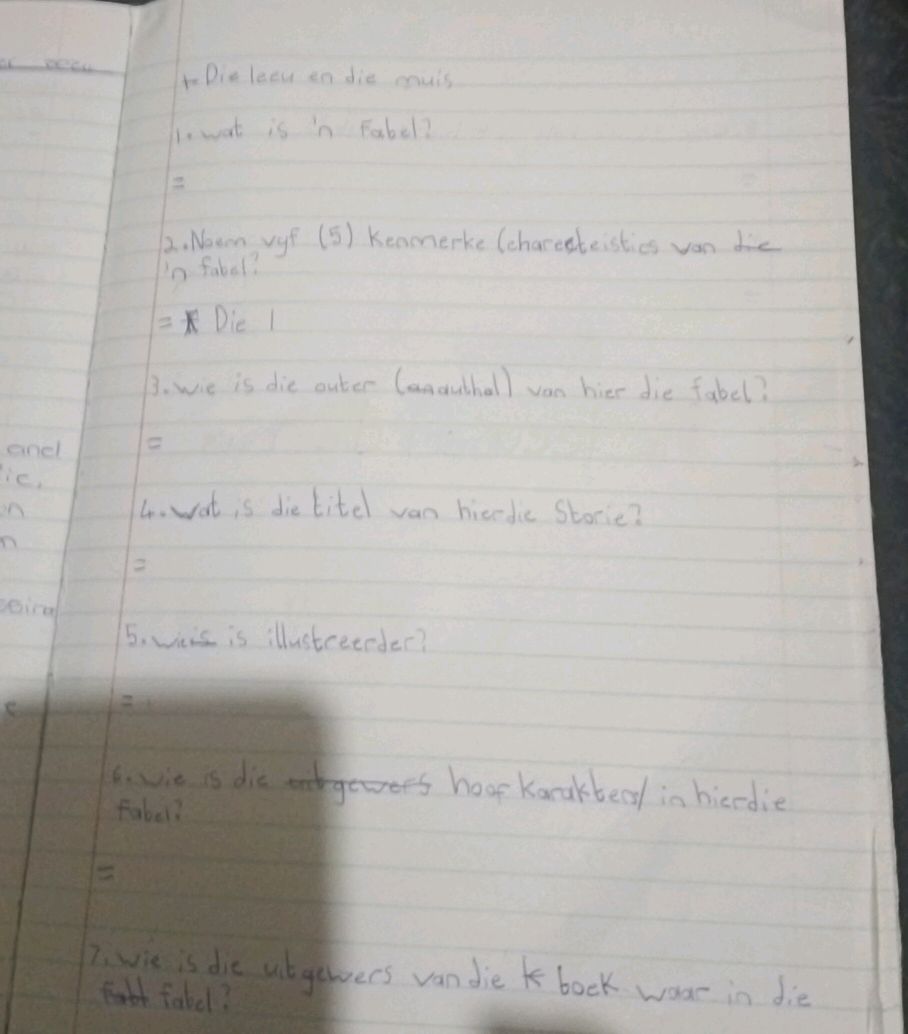 Die leeu en die muis
1. wat is 'n Fabel?
=
2. Noem vyf (5) Kenmerke (charecteistics van die
'n fabel?
= * Die l
3. wie is die outer (anauthol) van hier die fabel?
=
and
ic,
4. wat is die titel van hierdie Storie?
n
n
=
5. wie is illustreerder?
=
6. wie is die uitgewers hoof karakters/ in hierdie
Fabel?
=
7. wie is die uitgewers van die boek waar in die
fabel?